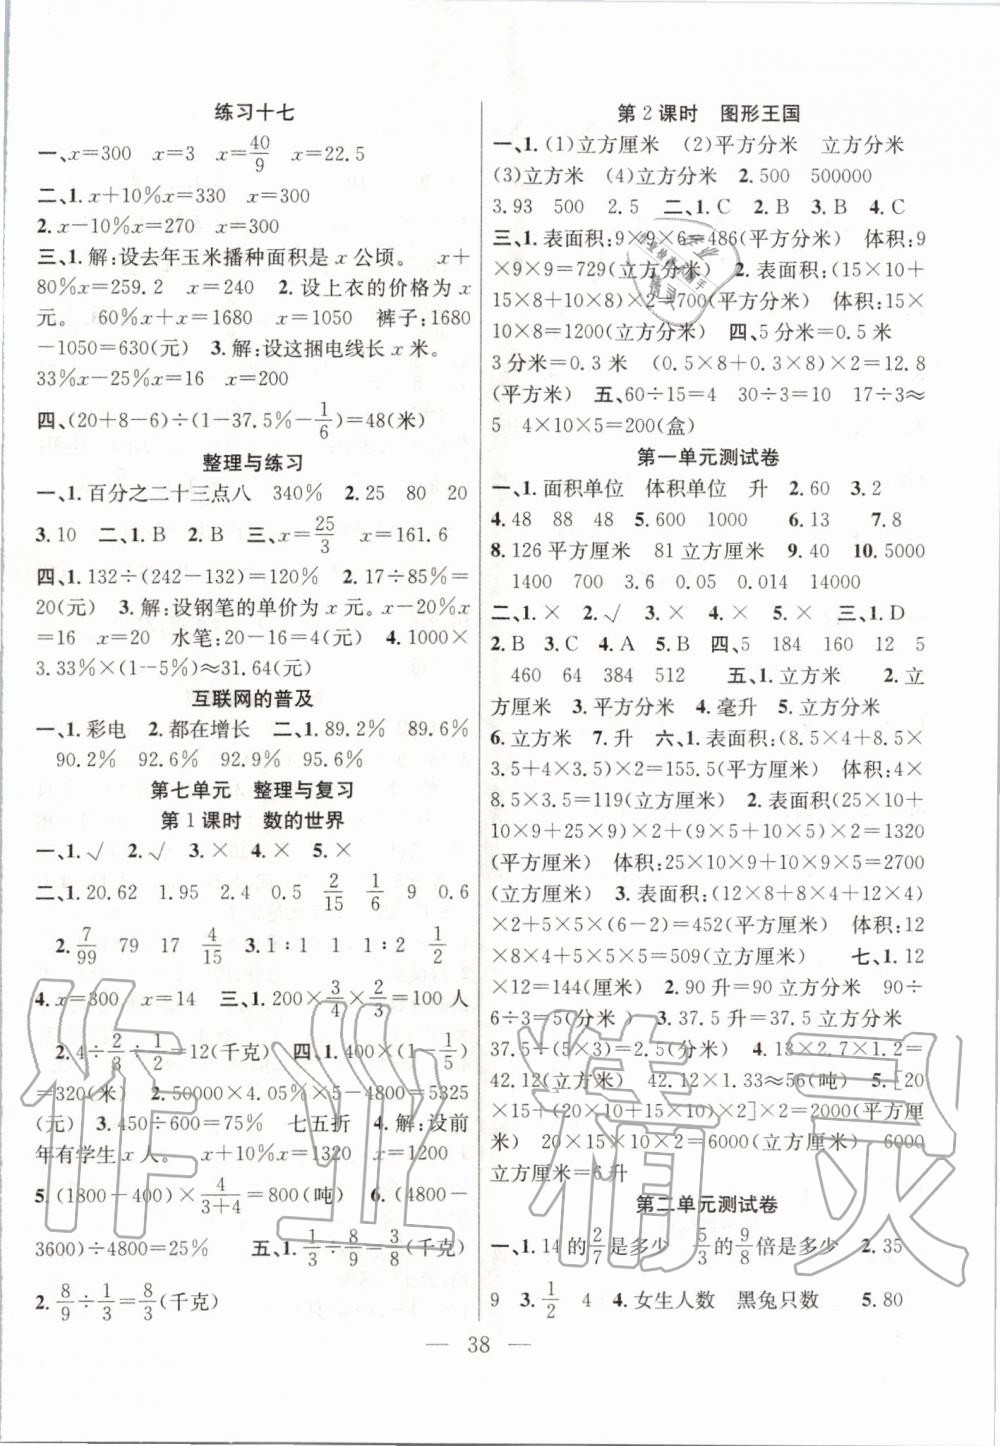 练习十七
一、x=300 x=3 x=40/9 x=22.5
二、1. x+10%x=330 x=300
2. x-10%x=270 x=300
三、1. 解:设去年玉米播种面积是 x 公顷。 x+
80%x=259.2 x=240 2. 设上衣的价格为 x
元。 60%x+x=1680 x=1050 裤子:1680
-1050=630(元) 3. 解:设这捆电线长 x 米。
33%x-25%x=16 x=200
四、(20+8-6)÷(1-37.5%-1/6)=48(米)
整理与练习
一、1. 百分之二十三点八 340% 2. 25 80 20
3. 10 二、1. B 2. B 三、x=25/3 x=161.6
四、1. 132÷(242-132)=120% 2. 17÷85%=
20(元) 3. 解:设钢笔的单价为 x 元。x-20%x
=16 x=20 水笔:20-16=4(元) 4. 1000×
3.33%×(1-5%)≈31.64(元)
互联网的普及
一、1. 彩电 2. 都在增长 二、1. 89.2% 89.6%
90.2% 92.6% 92.9% 95.6%
第七单元 整理与复习
第 1 课时 数的世界
一、1. √ 2. √ 3. × 4. × 5. ×
二、1. 20.62 1.95 2.4 0.5 2/15 1/6 9 0.6
2. 7/99 79 17 4/15 3. 1∶1 1 1∶2 1/2
4. x=300 x=14 三、1. 200×3/4×2/3=100 人
2. 4÷2/3÷1/2=12(千克) 四、1. 400×(1-1/5)
=320(米) 2. 5000×4.05%×5-4800=5325
(元) 3. 450÷600=75% 七五折 4. 解:设前
年有学生 x 人。 x+10%x=1320 x=1200
5. (1800-400)×4/3+4=800(吨) 6. (4800-
3600)÷4800=25% 五、1. 1/3÷8/9=3/8(千克)
2. 8/9÷1/3=8/3(千克)
第 2 课时 图形王国
一、1. (1)立方厘米 (2)平方分米 立方分米
(3)立方米 (4)立方分米 2. 500 500000
3. 93 500 2.5 二、1. C 2. B 3. B 4. C
三、1. 表面积:9×9×6=486(平方分米) 体积:9
×9×9=729(立方分米) 2. 表面积:(15×10+
15×8+10×8)×2=700(平方分米) 体积:15×
10×8=1200(立方分米) 四、5 分米=0.5 米
3 分米=0.3 米 (0.5×8+0.3×8)×2=12.8
(平方米) 五、60÷15=4 30÷3=10 17÷3≈
5 4×10×5=200(盒)
第一单元测试卷
一、1. 面积单位 体积单位 升 2. 60 3. 2
4. 48 88 48 5. 600 1000 6. 13 7. 8
8. 126 平方厘米 81 立方厘米 9. 40 10. 5000
1400 700 3.6 0.05 0.014 14000
二、1. × 2. √ 3. × 4. × 5. × 三、1. D
2. B 3. C 4. A 5. B 四、5 184 160 12 5
460 64 384 512 五、1. 立方米 2. 立
方厘米 3. 平方分米 4. 毫升 5. 立方分米
6. 立方米 7. 升 六、1. 表面积:(8.5×4+8.5×
3.5+4×3.5)×2=155.5(平方厘米) 体积:4×
8.5×3.5=119(立方厘米) 2. 表面积:(25×10+
10×9+25×9)×2+(9×5+10×5)×2=1320
(平方厘米) 体积:25×10×9+10×9×5=2700
(立方厘米) 3. 表面积:(12×8+8×4+12×4)
×2+5×5×(6-2)=452(平方厘米) 体积:12
×8×4+5×5×5=509(立方厘米) 七、1. 12
×12=144(厘米) 2. 90 升=90 立方分米 90÷
6÷3=5(分米) 3. 37.5 升=37.5 立方分米
37.5÷(5×3)=2.5(分米) 4. 13×2.7×1.2=
42.12(立方米) 42.12×1.33≈56(吨) 5. [20
×15+(20×10+15×10)×2]×2=2000(平方厘
米) 20×15×10×2=6000(立方厘米) 6000
立方厘米=6 升
第二单元测试卷
一、1. 14 的2/7是多少 5/3的9/8倍是多少 2. 35
9 3. 1/2 4 4. 女生人数 黑兔只数 5. 80
38
作业精灵